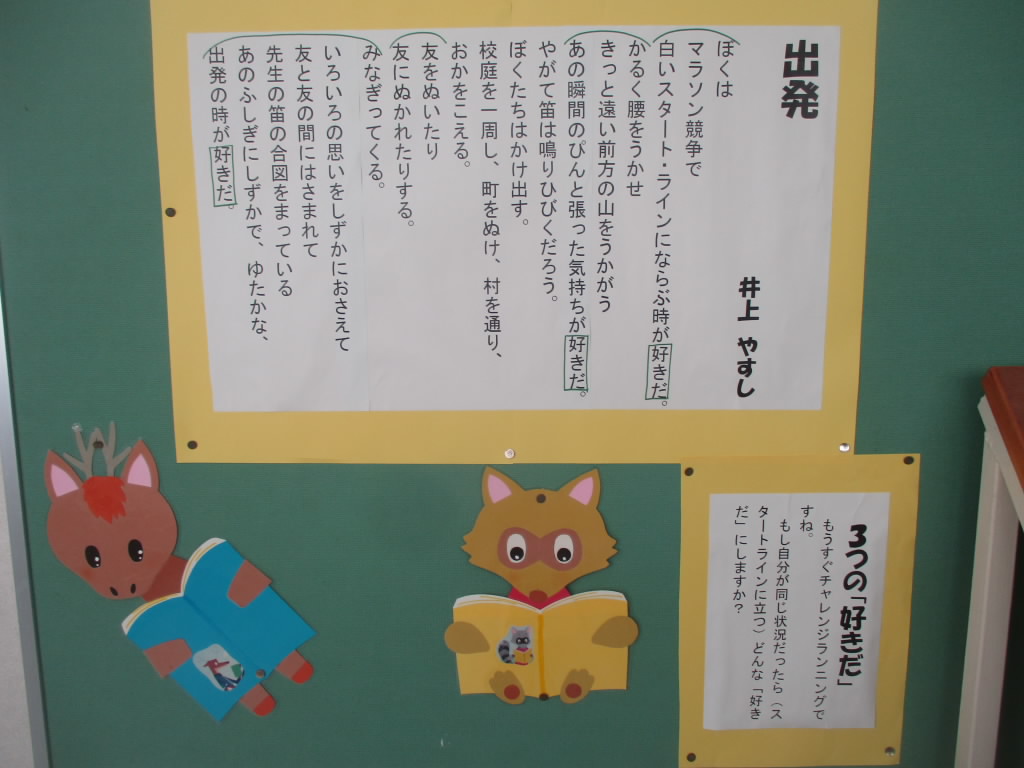 出発
井上 やすし
ぼくは
マラソン競争で
白いスタート・ラインにならぶ時が好きだ。
かるく腰をうかせ
きっと遠い前方の山をうかがう
あの瞬間のぴんと張った気持ちが好きだ。
やがて笛は鳴りひびくだろう。
ぼくたちはかけ出す。
校庭を一周し、町をぬけ、村を通り、
おかをこえる。
友をぬいたり
友にぬかれたりする。
みなぎってくる。
いろいろの思いをしずかにおさえて
友と友の間にはさまれて
先生の笛の合図をまっている
あのふしぎにしずかで、ゆたかな、
出発の時が好きだ。
３つの「好きだ」
もうすぐチャレンジランニングで
すね。
もし自分が同じ状況だったら（ス
タートラインに立つ）どんな「好き
だ」にしますか？